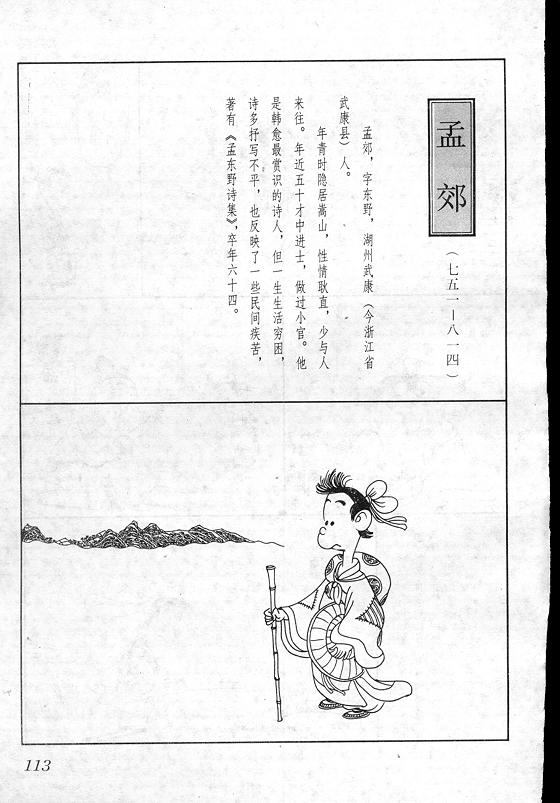 孟郊
（七五一－八一四）
孟郊，字东野，湖州武康（今浙江省
武康县）人。
年青时隐居嵩山，性情耿直，少与人
来往。年近五十才中进士，做过小官。他
是韩愈最赏识的诗人，但一生生活穷困，
诗多抒写不平，也反映了一些民间疾苦，
著有《孟东野诗集》，卒年六十四。
113